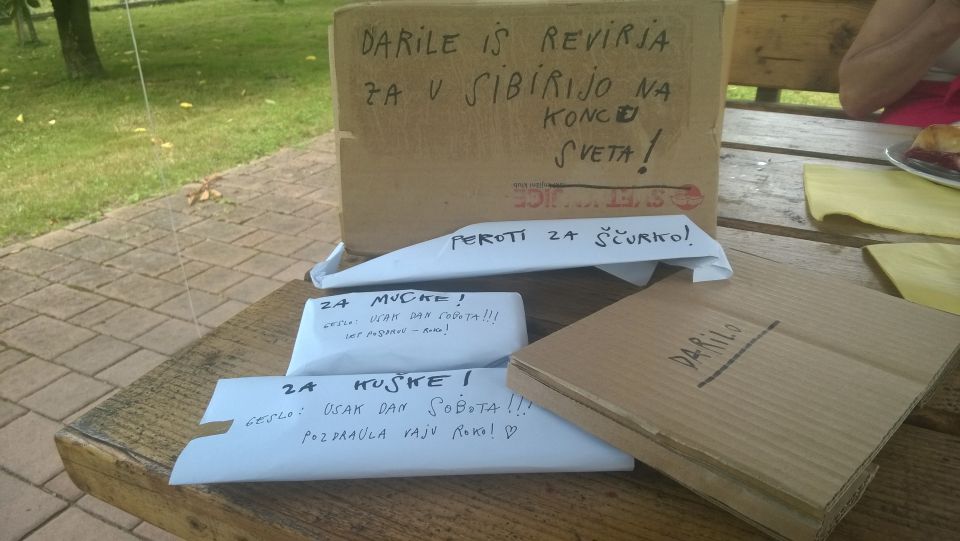 DARILE IŠ REVIRJA
ZA U SIBIRIJO NA
KONCU
SVETA!
SVET KNJIGE
knjižni klub
PEROTI ZA ŠČURKO!
ZA MUCKE!
GESLO: USAK DAN SOBOTA!!!
LEP POSDROU - ROKO!
ZA KUŠKE!
GESLO: USAK DAN SOBOTA!!!
POZDRAULA VAJU ROKO! ♡
DARILO